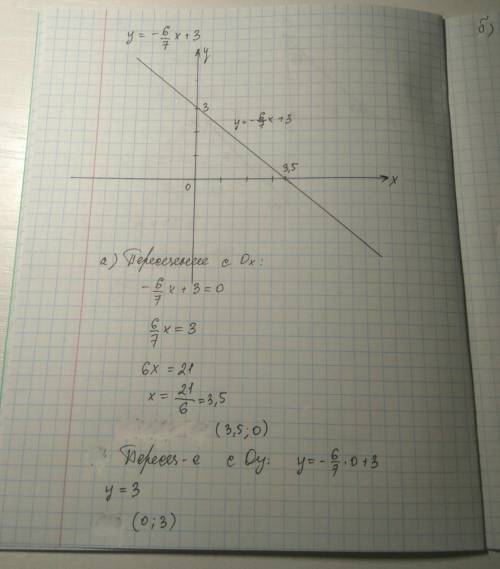 y = -6/7 x + 3
y
3
y = -6/7 x + 3
3,5
0
x
а) Пересечение с Ox:
-6/7 x + 3 = 0
6/7 x = 3
6x = 21
x = 21/6 = 3,5
(3,5; 0)
Перес-е с Oy: y = -6/7 · 0 + 3
y = 3
(0; 3)
б)